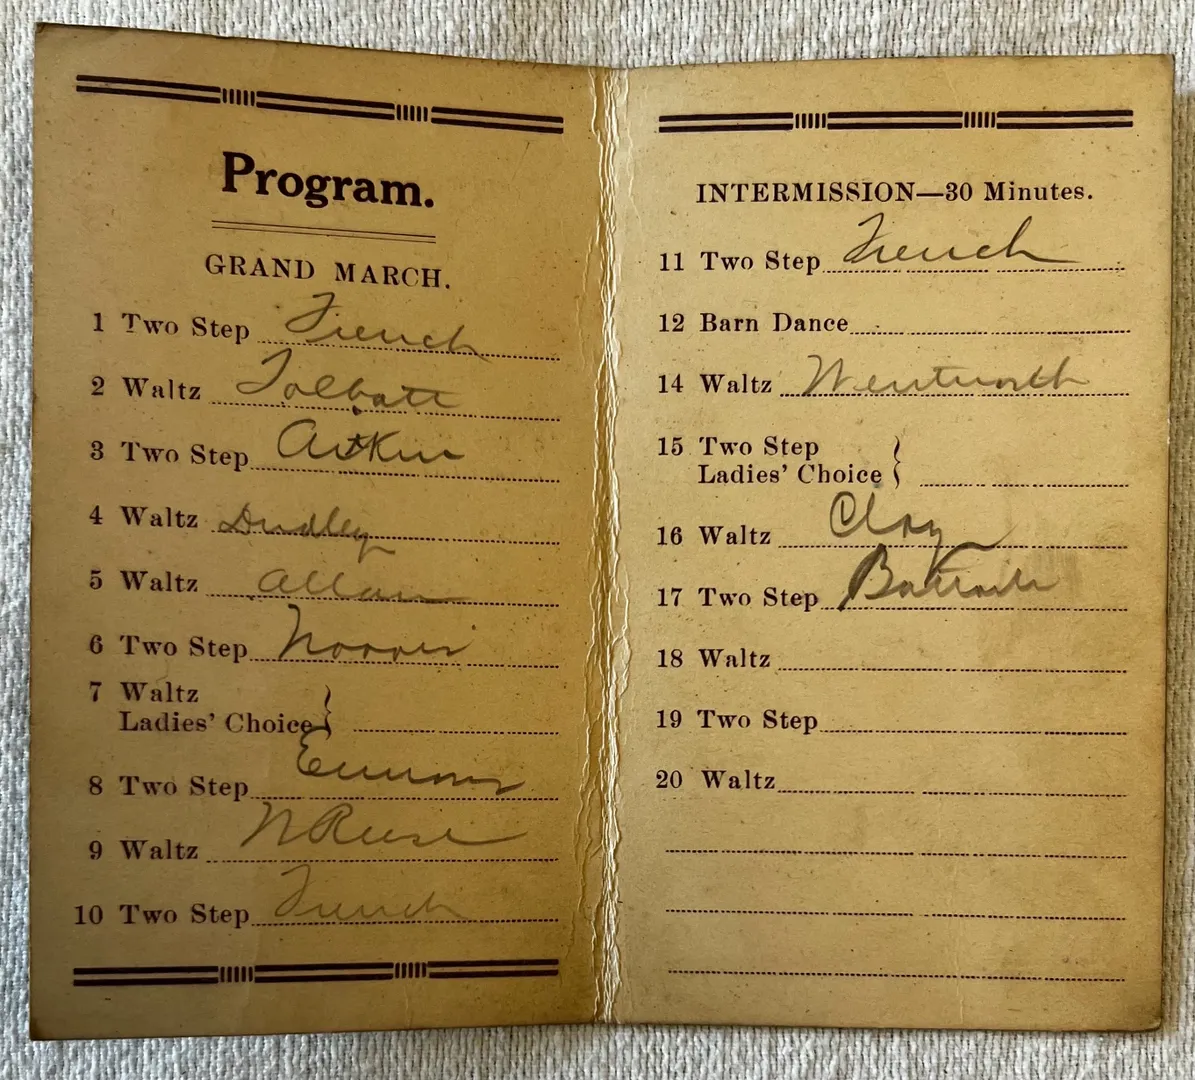 Program.
GRAND MARCH.
1 Two Step French
2 Waltz Talbott
3 Two Step Aitken
4 Waltz Dudley
5 Waltz Allan
6 Two Step Norris
7 Waltz
Ladies' Choice
8 Two Step Emmons
9 Waltz
10 Two Step French
INTERMISSION—30 Minutes.
11 Two Step French
12 Barn Dance
14 Waltz Wentworth
15 Two Step
Ladies' Choice
16 Waltz Clay
17 Two Step
18 Waltz
19 Two Step
20 Waltz